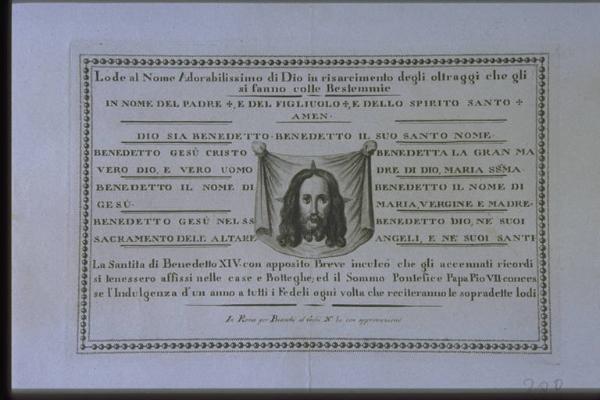 Lode al Nome Adorabilissimo di Dio in risarcimento degli oltraggi che gli
si fanno colle Bestemmie
IN NOME DEL PADRE ✠, E DEL FIGLIUOLO ✠, E DELLO SPIRITO SANTO ✠
AMEN.
DIO SIA BENEDETTO. BENEDETTO IL SUO SANTO NOME.
BENEDETTO GESÙ CRISTO
VERO DIO, E VERO UOMO
BENEDETTO IL NOME DI
GESÙ.
BENEDETTO GESÙ NEL SS
SACRAMENTO DELL' ALTARE
BENEDETTA LA GRAN MA
DRE DI DIO, MARIA SSMA.
BENEDETTO IL NOME DI
MARIA, VERGINE E MADRE.
BENEDETTO DIO, NE' SUOI
ANGELI, E NE' SUOI SANTI
La Santita di Benedetto XIV. con apposito Breve inculcò che gli accennati ricordi
si tenessero affissi nelle case e Botteghe; ed il Sommo Pontefice Papa Pio VII conces
se l'Indulgenza d'un anno a tutti i Fedeli ogni volta che reciteranno le sopradette lodi
In Roma per Bianchi al Gesù N° con approvazione